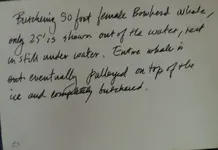 Butchering 50 foot female Bowhead whale,
only 25' is shown out of the water, rest
is still under water. Entire whale is
out eventually pulleyed on top of the
ice and completely butchered.